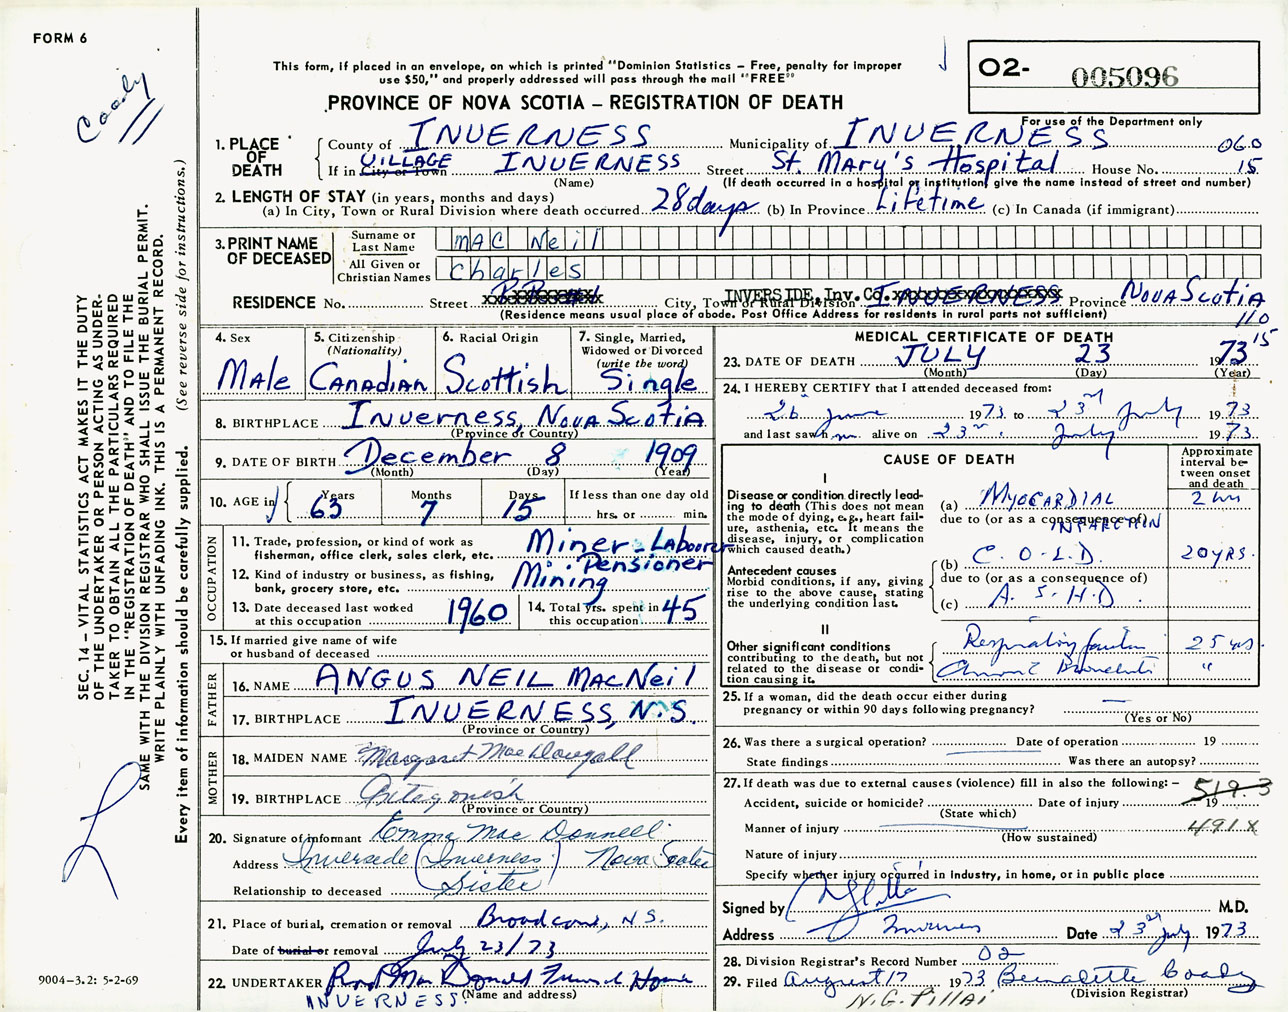 FORM 6
Coady
This form, if placed in an envelope, on which is printed "Dominion Statistics – Free, penalty for improper
use $50," and properly addressed will pass through the mail "FREE"
PROVINCE OF NOVA SCOTIA – REGISTRATION OF DEATH
O2- 005096
For use of the Department only
060
15
1. PLACE OF DEATH
County of INVERNESS Municipality of INVERNESS
If in City or Town VILLAGE INVERNESS Street St. MARY'S Hospital House No.
(Name) (If death occurred in a hospital or institution, give the name instead of street and number)
2. LENGTH OF STAY (in years, months and days)
(a) In City, Town or Rural Division where death occurred 28 days (b) In Province Lifetime (c) In Canada (if immigrant)
3. PRINT NAME OF DECEASED
Surname or Last Name MAC Neil
All Given or Christian Names Charles
RESIDENCE No. Street City, Town or Rural Division INVERSIDE, Inv. Co. INVERNESS Province NOVA SCOTIA
(Residence means usual place of abode. Post Office Address for residents in rural parts not sufficient)
110
15
4. Sex MALE
5. Citizenship (Nationality) CANADIAN
6. Racial Origin Scottish
7. Single, Married, Widowed or Divorced (write the word) Single
8. BIRTHPLACE Inverness, NOVA SCOTIA
(Province or Country)
9. DATE OF BIRTH December 8 1909
(Month) (Day) (Year)
10. AGE in Years 63 Months 7 Days 15 If less than one day old
hrs. or min.
OCCUPATION
11. Trade, profession, or kind of work as fisherman, office clerk, sales clerk, etc. Miner - Labourer Pensioner
12. Kind of industry or business, as fishing, bank, grocery store, etc. Mining
13. Date deceased last worked at this occupation 1960
14. Total yrs. spent in this occupation 45
15. If married give name of wife or husband of deceased
FATHER
16. NAME ANGUS NEIL MACNeil
17. BIRTHPLACE INVERNESS, N.S.
(Province or Country)
MOTHER
18. MAIDEN NAME Margaret MacDougall
19. BIRTHPLACE Antagonish
(Province or Country)
20. Signature of informant Emma Mac Donnell
Address Inverside (Inverness) Nova Scotia
Relationship to deceased Sister
21. Place of burial, cremation or removal Broad cove, N.S.
Date of burial or removal July 23/73
22. UNDERTAKER Mac Donald Funeral Home
INVERNESS. (Name and address)
MEDICAL CERTIFICATE OF DEATH
23. DATE OF DEATH JULY 23 1973
(Month) (Day) (Year)
24. I HEREBY CERTIFY that I attended deceased from:
26 June 1973 to 23rd July 1973
and last saw him alive on 23rd. July 1973
CAUSE OF DEATH
Approximate interval between onset and death
I
Disease or condition directly leading to death (This does not mean the mode of dying, e.g., heart failure, asthenia, etc. It means the disease, injury, or complication which caused death.)
(a) MYOCARDIAL INFARCTION 2 hrs
due to (or as a consequence of)
(b) C. O. L. D. 20 YRS.
due to (or as a consequence of)
(c) A. S. H. D.
Antecedent causes
Morbid conditions, if any, giving rise to the above cause, stating the underlying condition last.
II
Other significant conditions
contributing to the death, but not related to the disease or condition causing it.
Respiratory failure 25 yrs.
Chronic Bronchitis "
25. If a woman, did the death occur either during pregnancy or within 90 days following pregnancy? —
(Yes or No)
26. Was there a surgical operation? Date of operation 19
State findings Was there an autopsy?
27. If death was due to external causes (violence) fill in also the following: – 519 3
Accident, suicide or homicide? Date of injury 19
(State which)
Manner of injury 491X
(How sustained)
Nature of injury
Specify whether injury occurred in industry, in home, or in public place
Signed by M.D.
Address Inverness Date 23rd July 1973
28. Division Registrar's Record Number 02
29. Filed August 17 1973 Bernadette Coady
(Division Registrar)
N.G. Pillai
SEC. 14 – VITAL STATISTICS ACT MAKES IT THE DUTY
OF THE UNDERTAKER OR PERSON ACTING AS UNDER-
TAKER TO OBTAIN ALL THE PARTICULARS REQUIRED
IN THE "REGISTRATION OF DEATH" AND TO FILE THE
SAME WITH THE DIVISION REGISTRAR WHO SHALL ISSUE THE BURIAL PERMIT.
WRITE PLAINLY WITH UNFADING INK. THIS IS A PERMANENT RECORD.
Every item of information should be carefully supplied. (See reverse side for instructions.)
9004-3.2: 5-2-69